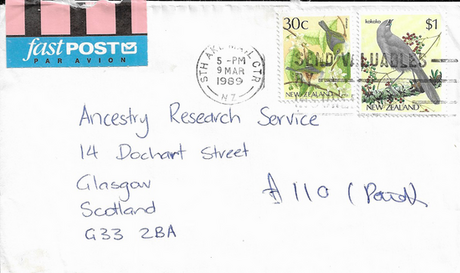 fastPOST
PAR AVION
STH AKL MAIL CTR
5 -PM
9 MAR
1989
N.Z.
30c
NEW ZEALAND
kokako
$1
NEW ZEALAND
SEND VALUABLES
Ancestry Research Service
14 Dochart Street
Glasgow
Scotland
G33 2BA
A110 (Paid)